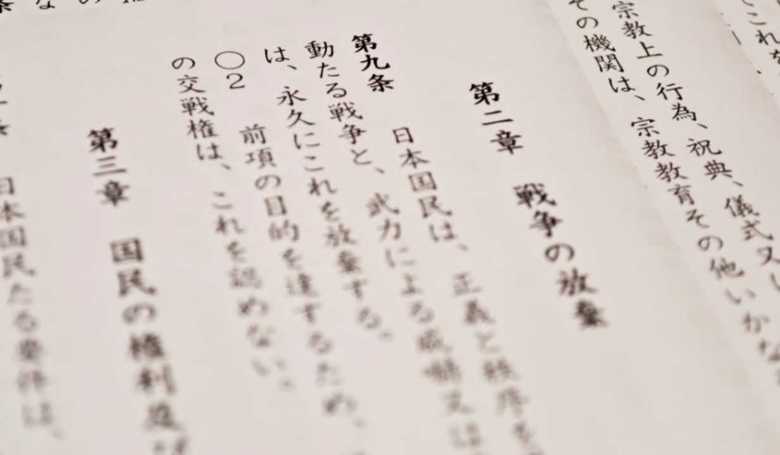 てこれを
宗教上の行為、祝典、儀式又
その機関は、宗教教育その他いかな
第二章 戦争の放棄
第九条 日本国民は、正義と秩序を
動たる戦争と、武力による威嚇又は
は、永久にこれを放棄する。
○2 前項の目的を達するため、
の交戦権は、これを認めない。
第三章 国民の権利及
条 日本国民たる要件は、